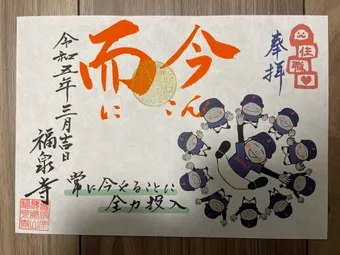 奉拝
住職
今
こん
而
に
常に今やることに
全力投入
令和五年三月吉日
福泉寺